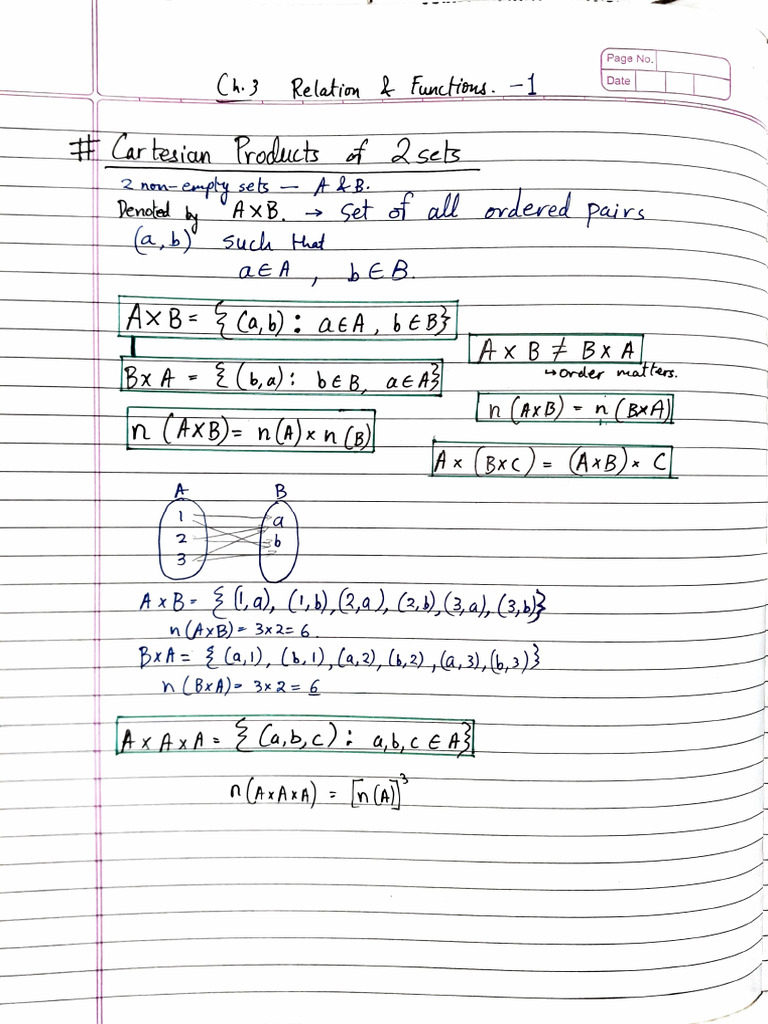 Page No.
Date
Ch.3 Relation & Functions. -1
# Cartesian Products of 2 sets
2 non-empty sets — A & B.
Denoted by A×B. → set of all ordered pairs
(a,b) such that
a∈A , b∈B.
A×B = {(a,b) : a∈A, b∈B}
A × B ≠ B × A
↳ order matters.
B×A = {(b,a) : b∈B, a∈A}
n (A×B) = n (B×A)
n (A×B) = n(A) × n(B)
A × (B×C) = (A×B) × C
A B
1 a
2 b
3
A×B = {(1,a), (1,b), (2,a), (2,b), (3,a), (3,b)}
n(A×B) = 3×2 = 6.
B×A = {(a,1), (b,1), (a,2), (b,2), (a,3), (b,3)}
n(B×A) = 3×2 = 6
A × A × A = {(a,b,c) : a,b,c ∈ A}
n(A×A×A) = [n(A)]³